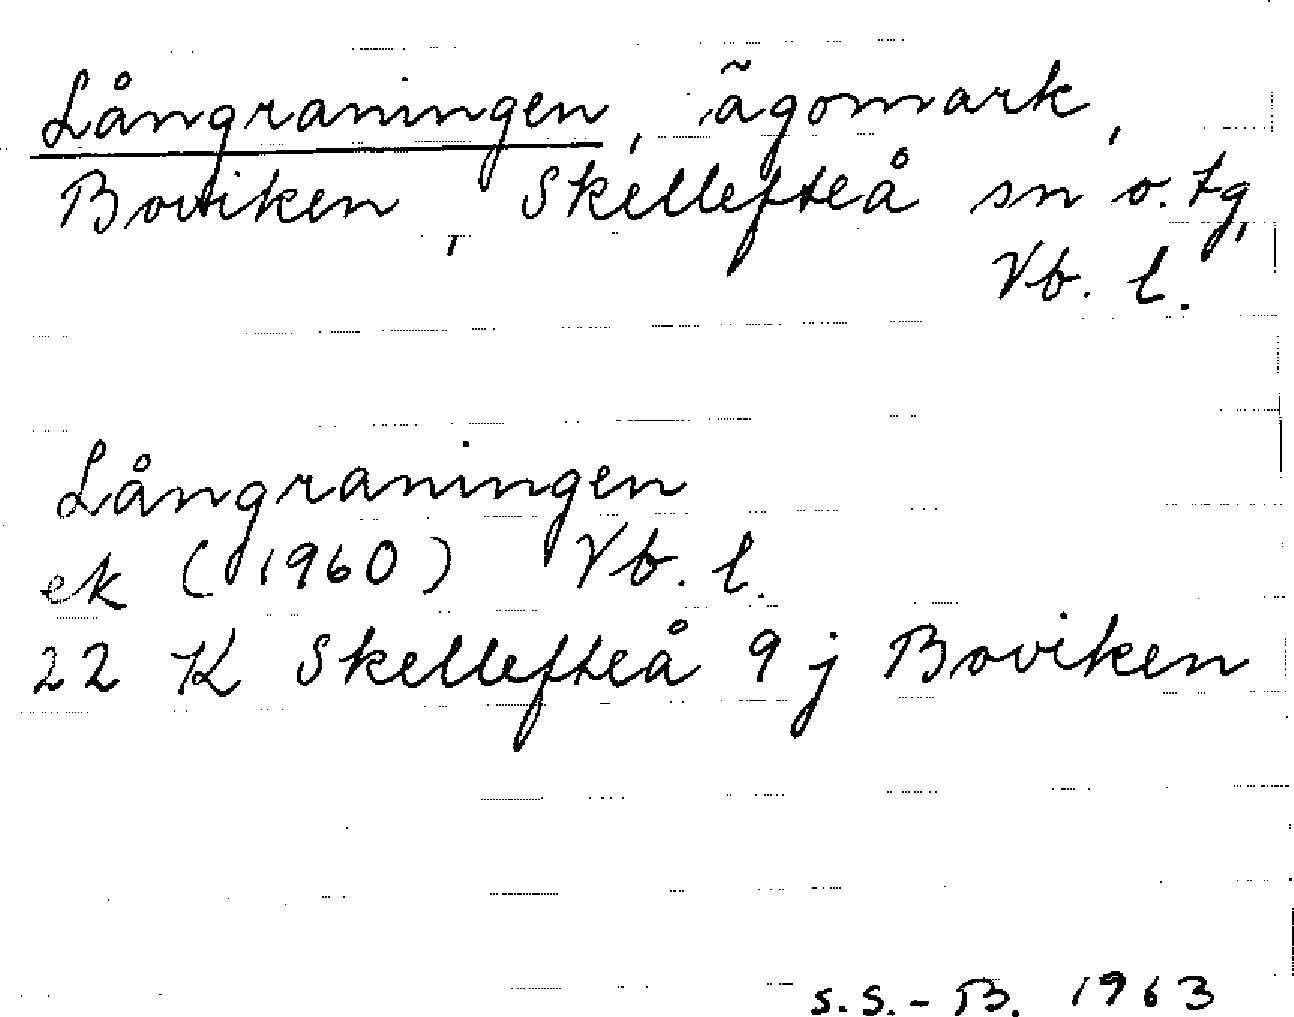 Långraningen, ägomark,
Boviken, Skellefteå sn o. tg,
Vb. l.
Långraningen
ek (1960) Vb. l.
22 K Skellefteå 9 j Boviken
S.S.-B. 1963